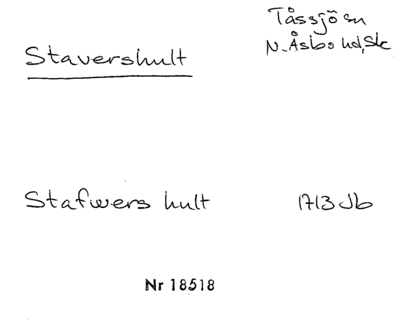 Tåssjö sn
Stavershult
N. Åsbo hd, Sk
Stafwers hult 1713 Jb
Nr 18518